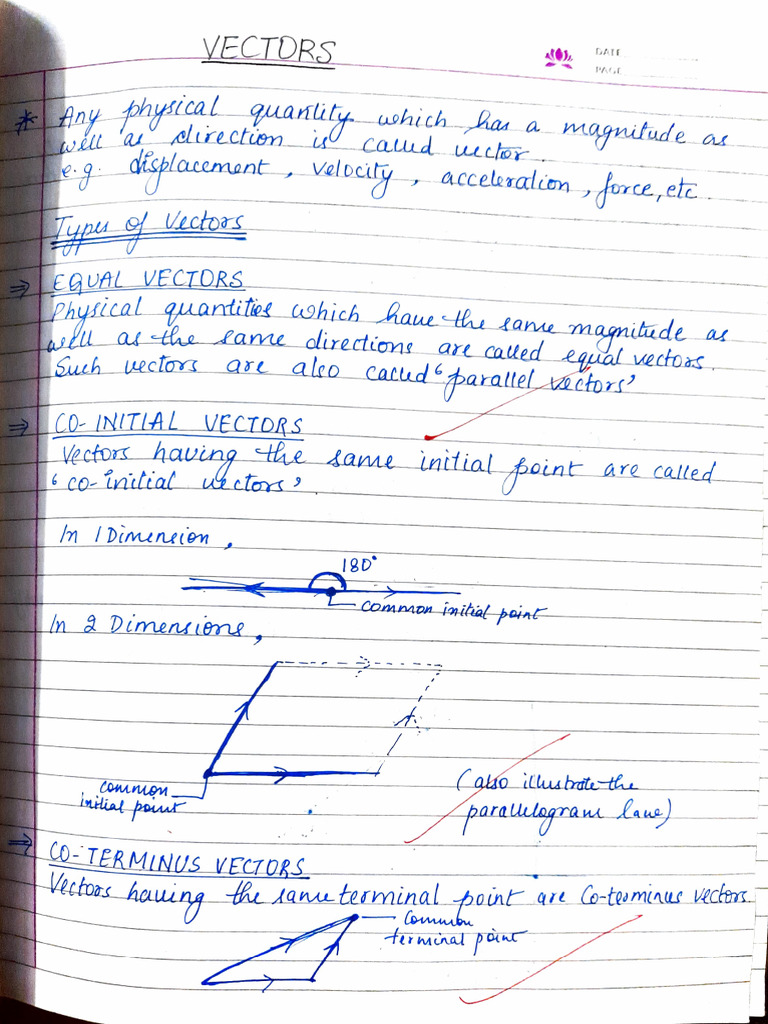 VECTORS
DATE
PAGE
* Any physical quantity which has a magnitude as
well as direction is called vector.
e.g. displacement, velocity, acceleration, force, etc.
Types of Vectors
⇒ EQUAL VECTORS
Physical quantities which have the same magnitude as
well as the same directions are called equal vectors.
Such vectors are also called 'parallel vectors'
⇒ CO-INITIAL VECTORS
Vectors having the same initial point are called
'co-initial vectors'.
In 1 Dimension,
180°
common initial point
In 2 Dimensions,
common
initial point
(also illustrate the
parallelogram law)
⇒ CO-TERMINUS VECTORS
Vectors having the same terminal point are Co-terminus vectors.
Common
terminal point